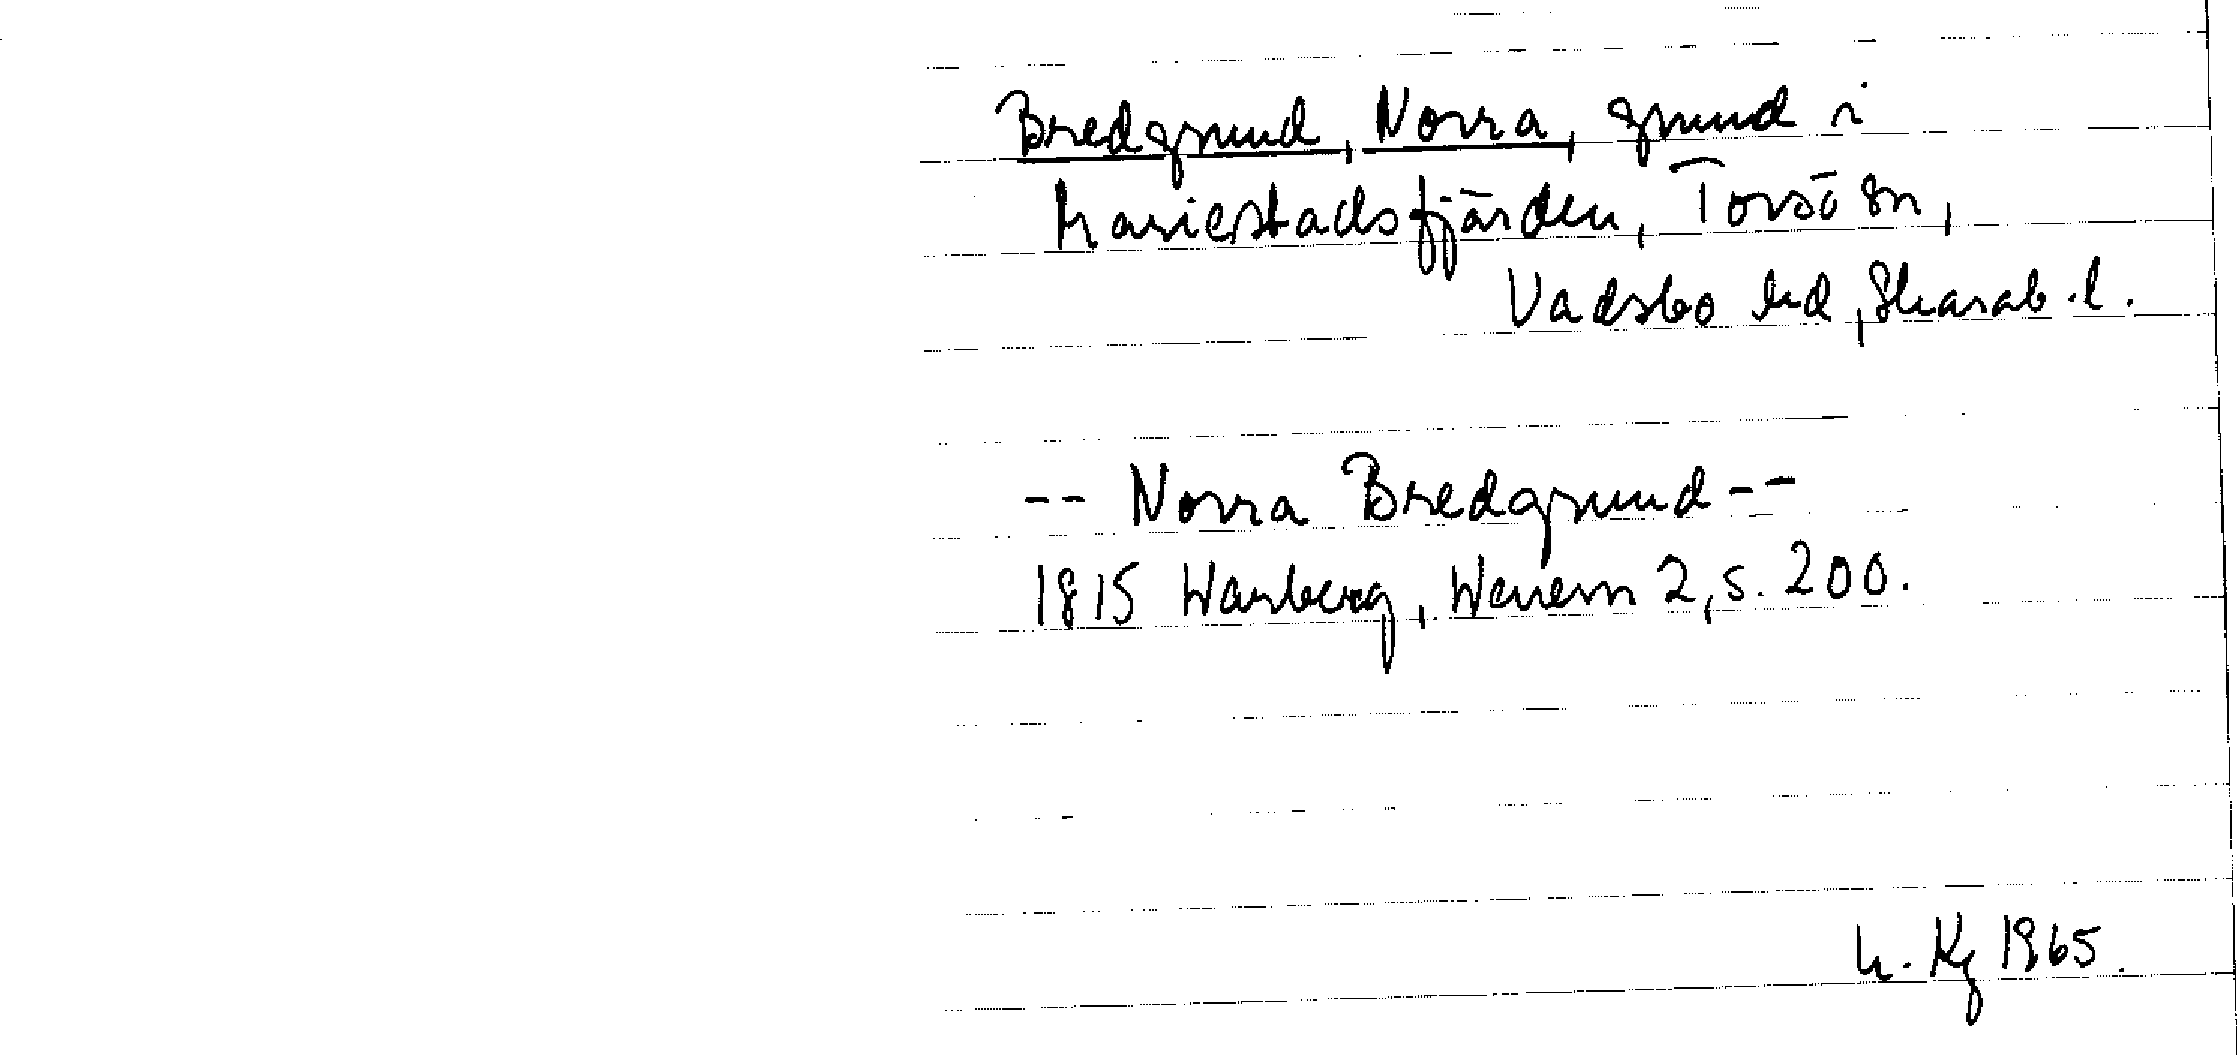 Bredgrund, Norra, grund i
Mariestadsfjärden, Torsö sn,
Vadsbo hd, Skarab. l.
-- Norra Bredgrund --
1815 Warberg, Wenern 2, s. 200.
Kg 1965.